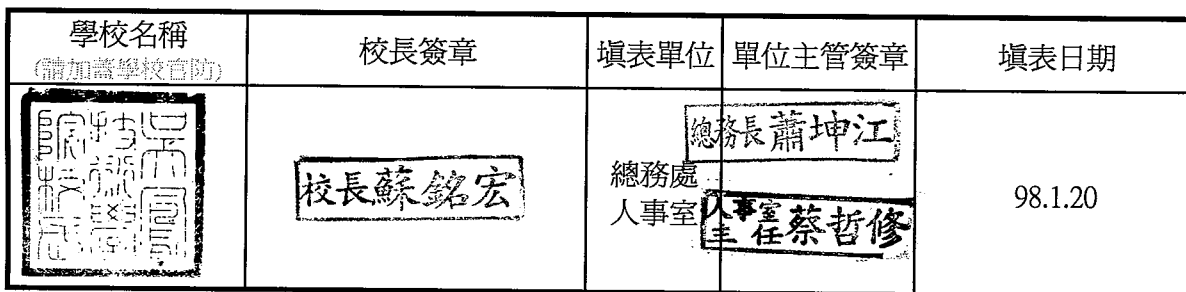 學校名稱
(請加蓋學校官防)
校長簽章
填表單位
單位主管簽章
填表日期
吳鳳
技術學
院校戳
校長蘇銘宏
總務處
人事室
總務長蕭坤江
人事室
主任蔡哲修
98.1.20